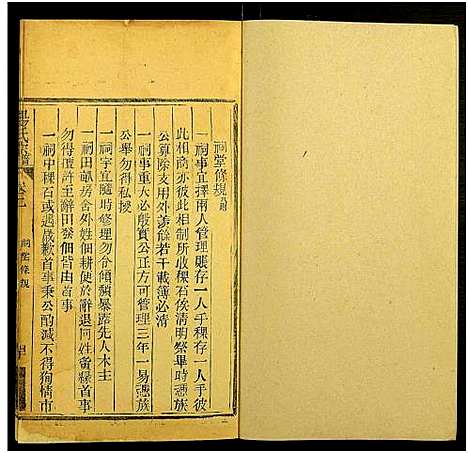 祠堂條規
一祠事宜擇兩人管理賬存一人手稞存一人手彼
此相商亦彼此相制所收稞石俟清明祭畢時憑族
公算除支用外羨餘若干載簿必清
一祠事重大必殷實公正方可管理三年一易憑族
公舉勿得私授
一祠宇宜隨時修理勿令傾頹暴露先人木主
一祠田畝房舍外姓佃耕便於辭退同姓當稞首事
勿得擅許至辭田發佃皆由首事
一祠中稞石或遇歲歉首事秉公酌減不得徇情市
氏宗譜
卷
祠堂條規